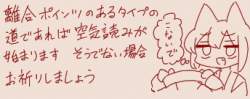 離合ポインツのあるタイプの
道であれば空気読みが
始まります そうでない場合
お祈りしましょう
ないで